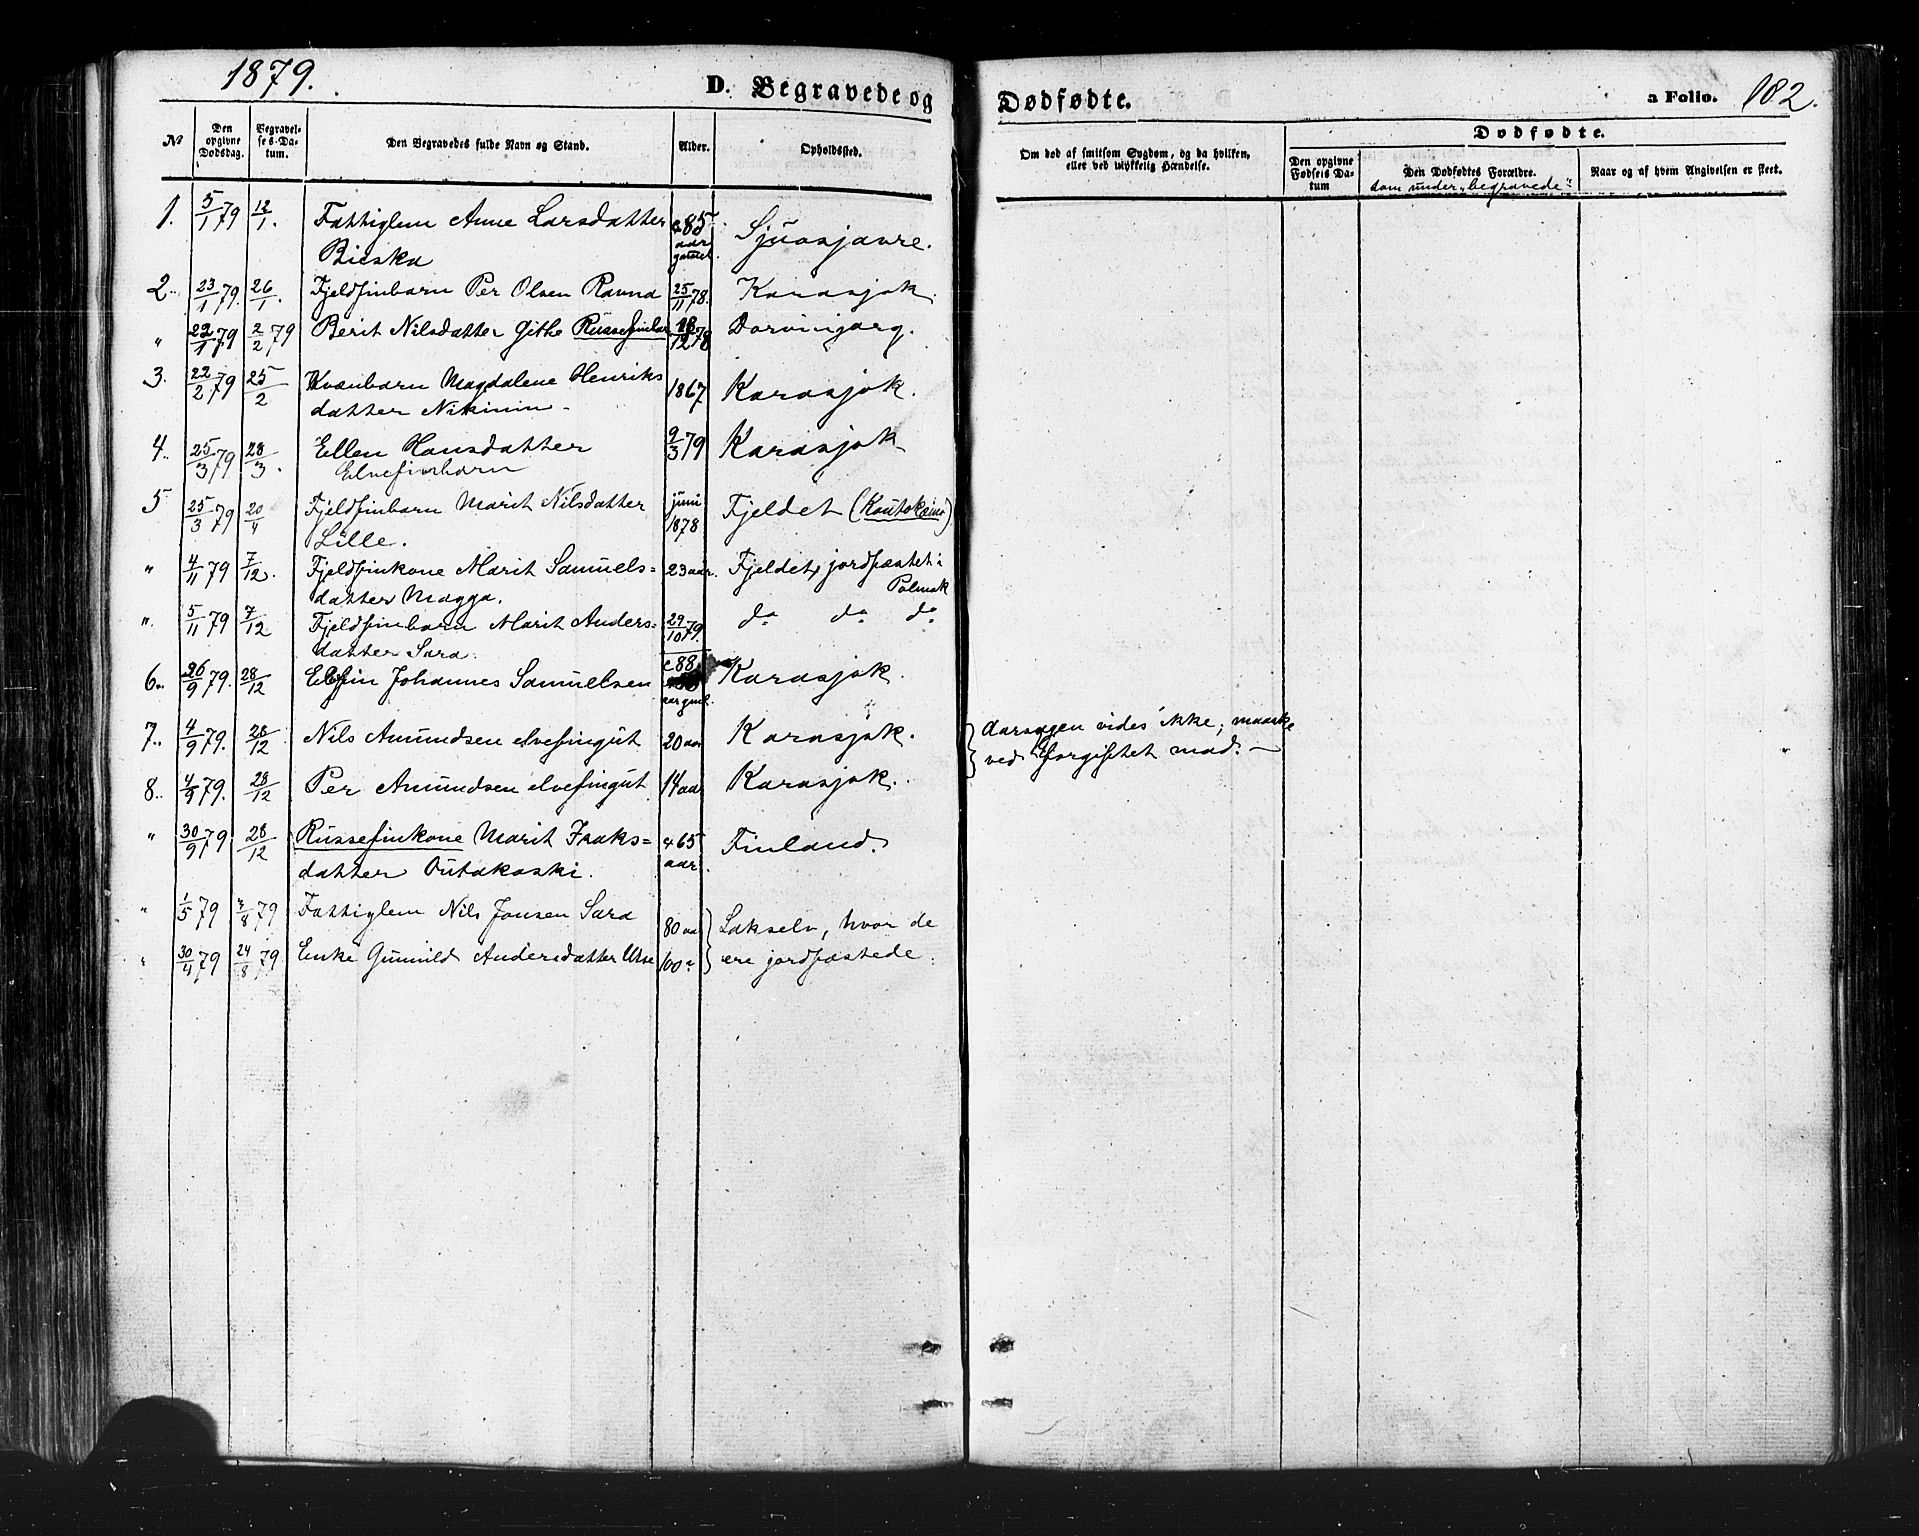 1879.
D. Begravede og
Dødfødte.
a Folio. 182.
No
Den opgivne Dødsdag.
Begravelses-Datum.
Den Begravedes fulde Navn og Stand.
Alder.
Opholdssted.
Om død af smitsom Sygdom, og da hvilken, eller ved ulykkelig Hændelse.
Dødfødte.
Den opgivne Fødsels Datum
Den Dødfødtes Forældre.
som under „begravede“
Naar og af hvem Angivelsen er skeet.
1. 5/1 79 12/1. Fattiglem Anne Larsdatter c 85 aar gammel. Sjuosjavre.
Bieska
2. 23/1 79. 26/1. Fjeldfinbarn Per Olsen Ravna 25/11 78. Karasjok.
" 22/1 79 2/2 79 Berit Nilsdatter Githe Russefinbarn 12 78 Dorvinjarg.
3. 22/2 79 25/2 Kvænbarn Magdalene Henriks 1867 Karasjok.
datter Nikinin -
4. 25/3 79 28/3. Ellen Hansdatter 9/3 79 Karasjok
Elvefinbarn
5 25/3 79 20/4 Fjeldfinbarn Marit Nilsdatter juni 1878 Fjeldet (Koutokeino)
Lille.
" 4/11 79 7/12. Fjeldfinkone Marit Samuels= 23 aar. Fjeldet, jordfæstet i
datter Magga. Polmak
" 5/11 79 7/12 Fjeldfinbarn Marit Anders= 29/10 79. do do do
datter Sara.
6. 26/9 79. 28/12 Elvfin Johannes Samuelsen c 88 aar gml. Karasjok.
7. 4/9 79. 28/12 Nils Amundsen elvefingut 20 aar Karasjok. Aarsagen vides ikke; maaske
8. 4/9 79. 28/12 Per Amundsen elvefingut 14 aar Karasjok. ved forgiftet mad. -
" 30/9 79 28/12 Russefinkone Marit Isaks= c 65 aar Finland.
datter Outakoski.
" 1/5 79 /8 79 Fattiglem Nils Jonsen Sara 80 aar Lakselv, hvor de
" 30/4 79 24/8 79 Enke Gunnild Andersdatter Utse 100 " ere jordfæstede.